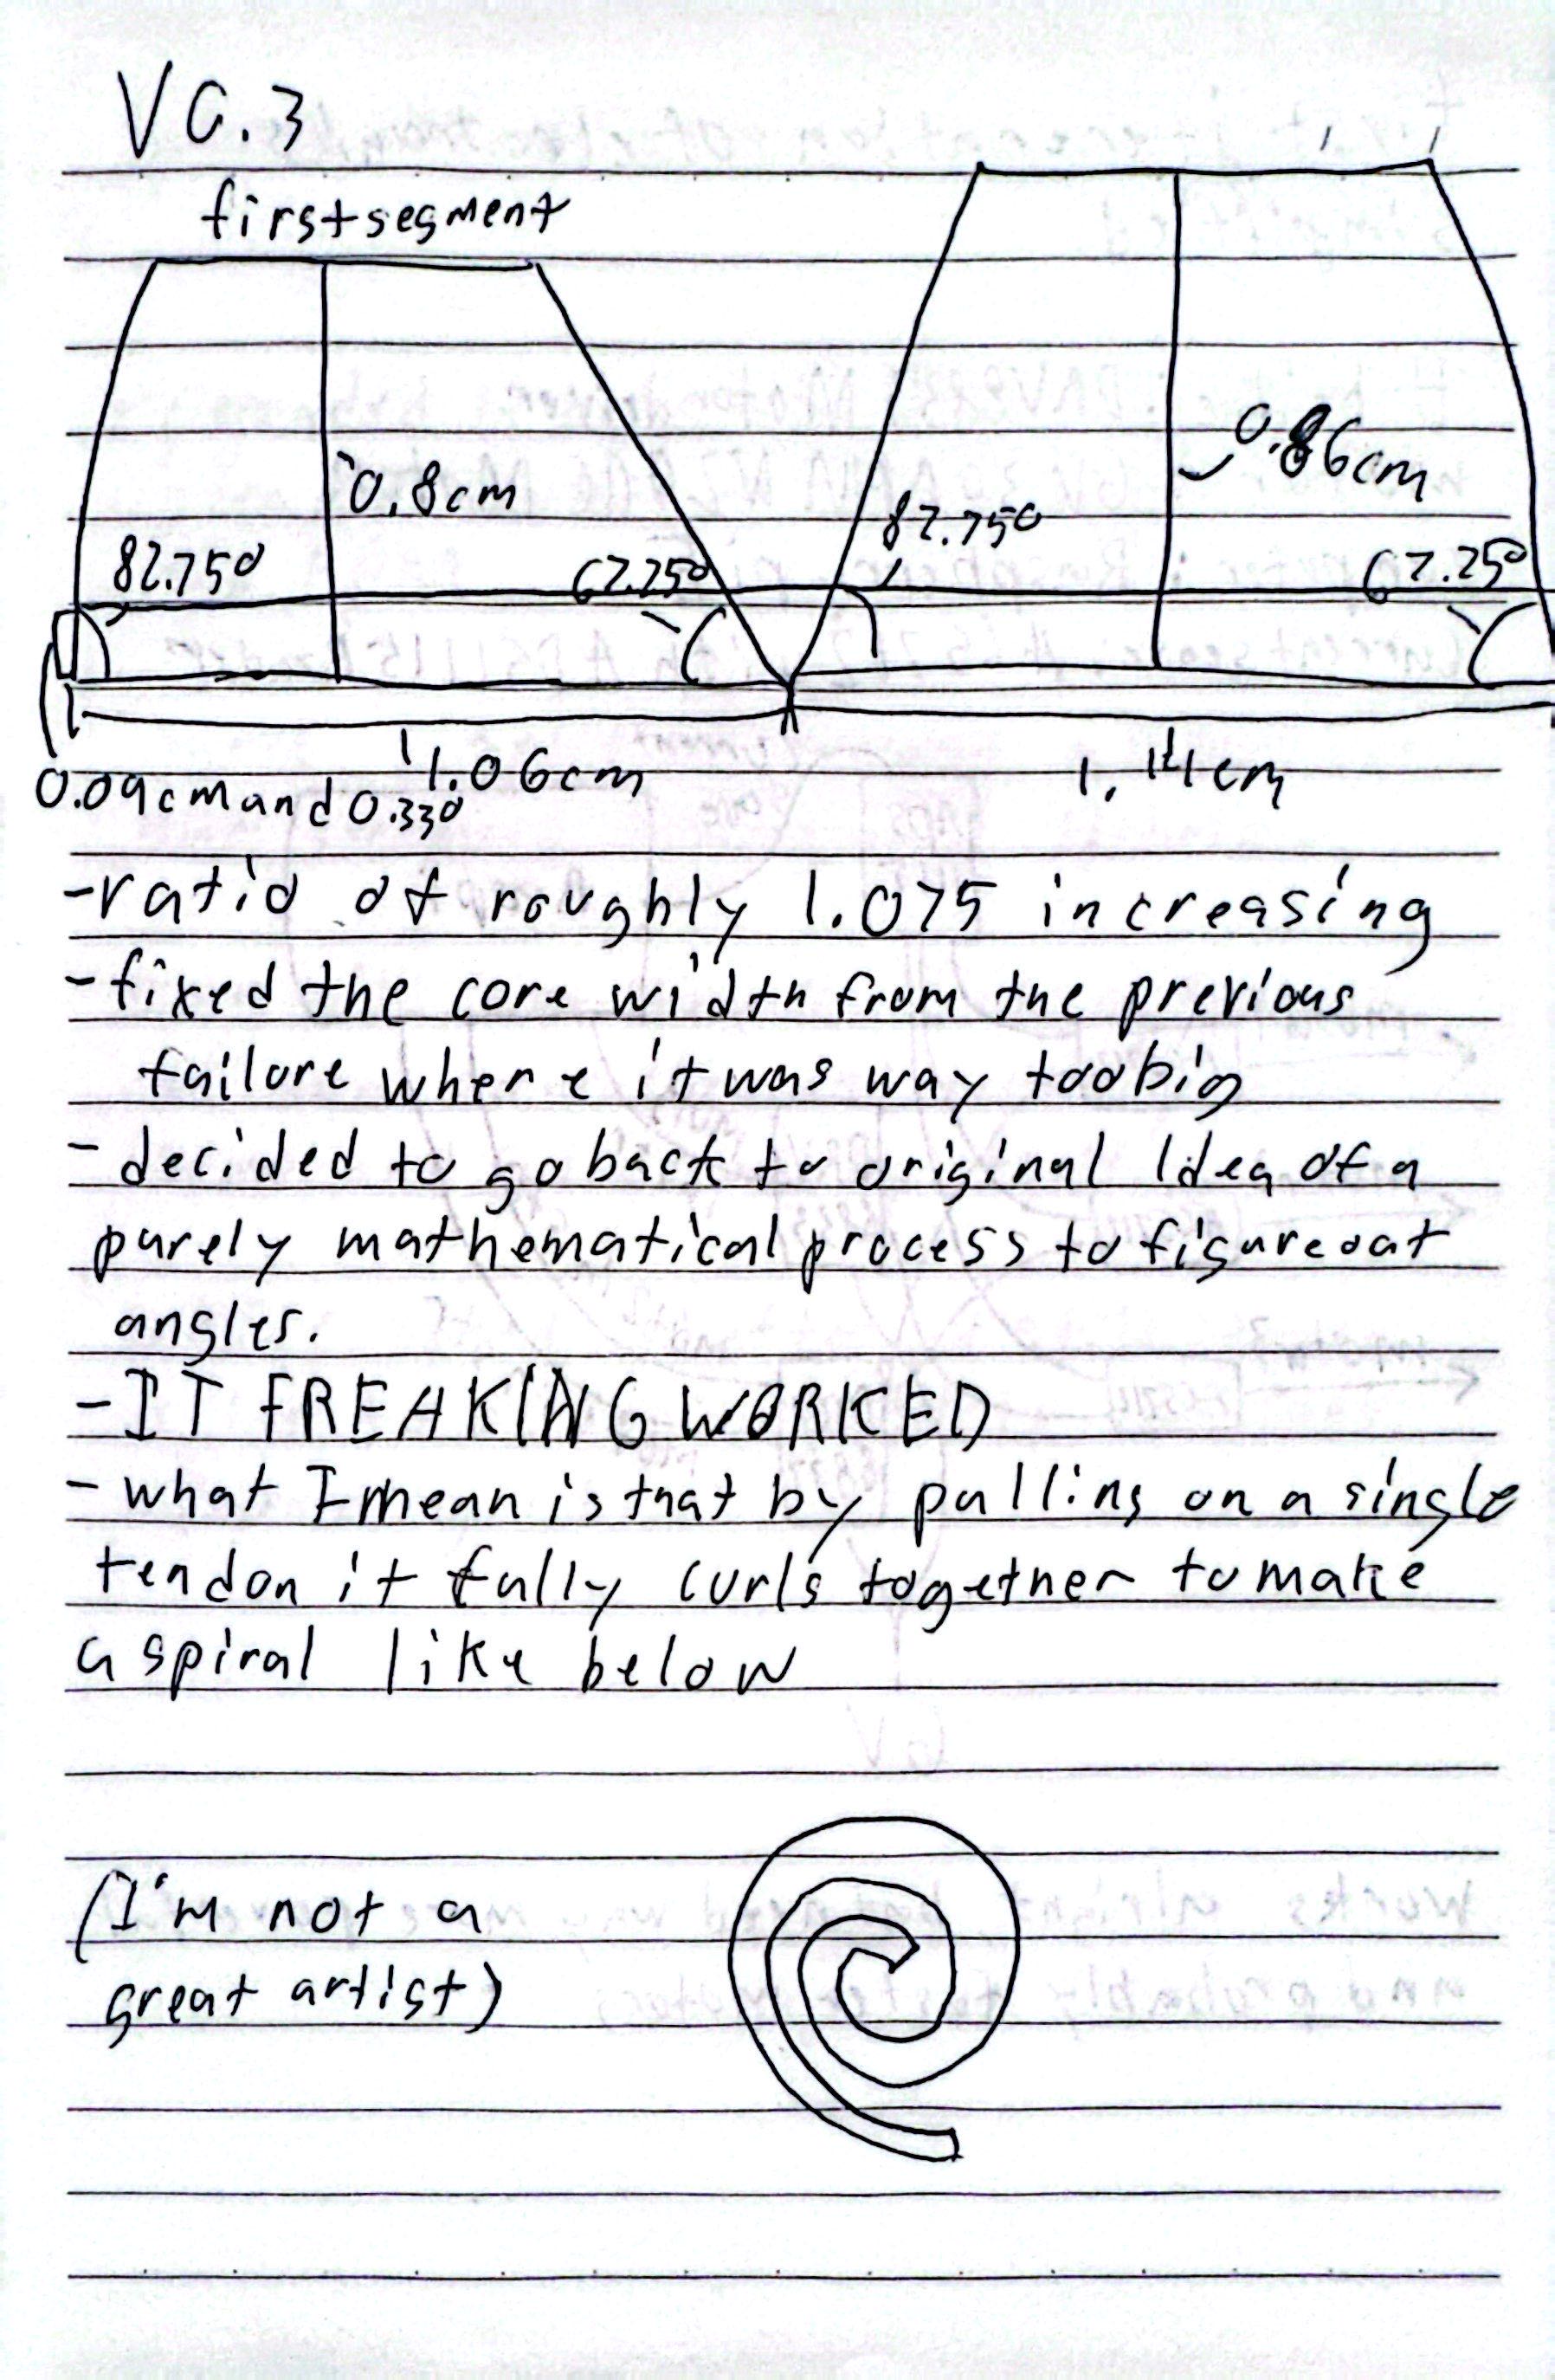 V0.3
first segment
0.8cm
0.86cm
82.75°
67.25°
82.75°
67.25°
0.09cm and 0.33°
1.06cm
1.14cm
-ratio of roughly 1.075 increasing
-fixed the core width from the previous
failure where it was way too big
-decided to go back to original Idea of a
purely mathematical process to figure out
angles.
-IT FREAKING WORKED
-what I mean is that by pulling on a single
tendon it fully curls together to make
a spiral like below
(I'm not a
great artist)